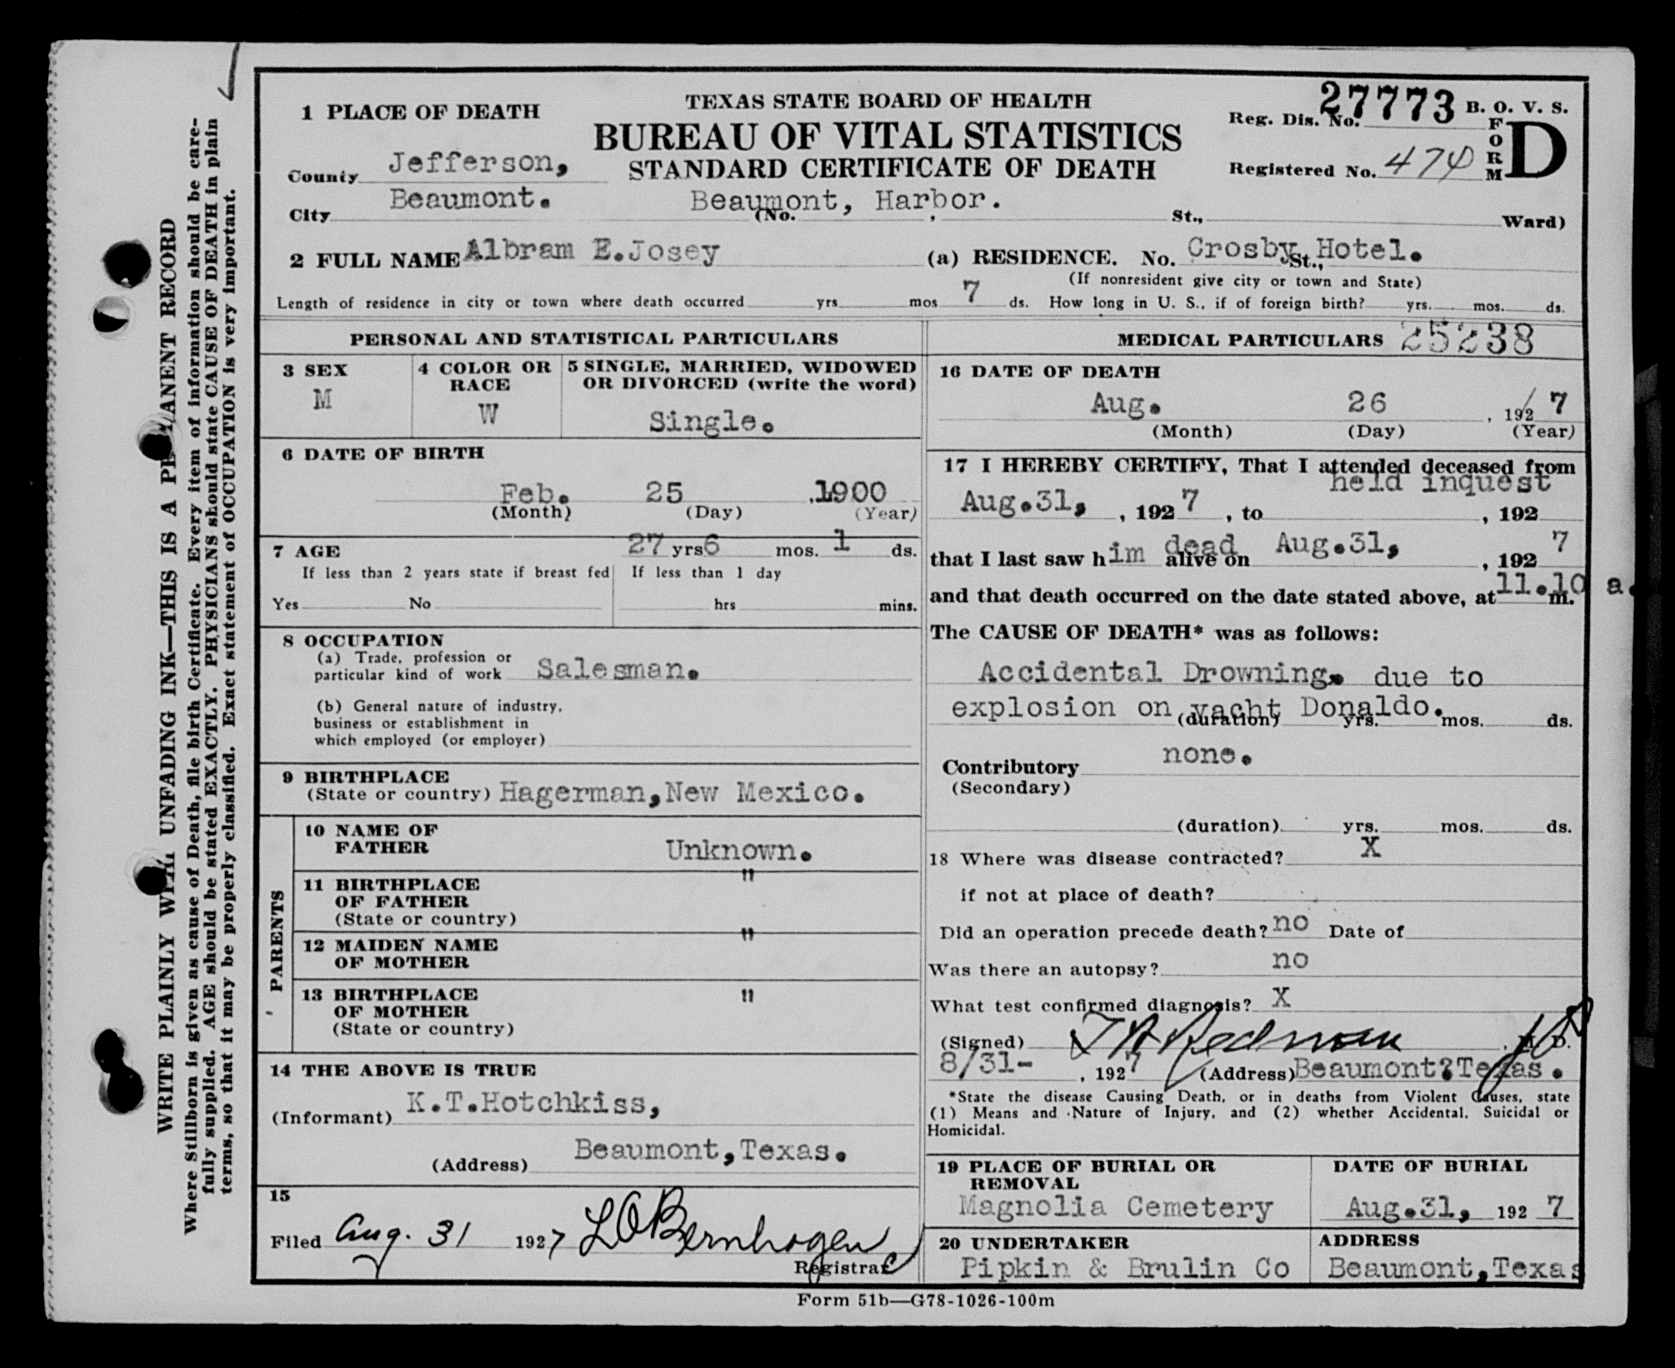 WRITE PLAINLY WITH UNFADING INK—THIS IS A PERMANENT RECORD
Where Stillborn is given as cause of Death, file birth Certificate. Every item of information should be care-
fully supplied. AGE should be stated EXACTLY. PHYSICIANS should state CAUSE OF DEATH in plain
terms, so that it may be properly classified. Exact statement of OCCUPATION is very important.
TEXAS STATE BOARD OF HEALTH
BUREAU OF VITAL STATISTICS
STANDARD CERTIFICATE OF DEATH
Reg. Dis. No. 27773 B. O. V. S.
FORM D
Registered No. 474
1 PLACE OF DEATH
County Jefferson,
City Beaumont. (No. Beaumont, Harbor. , St., Ward)
2 FULL NAME Albram E.Josey (a) RESIDENCE. No. Crosby St., Hotel.
(If nonresident give city or town and State)
Length of residence in city or town where death occurred yrs. mos 7 ds. How long in U. S., if of foreign birth? yrs. mos. ds.
PERSONAL AND STATISTICAL PARTICULARS
3 SEX
M
4 COLOR OR
RACE
W
5 SINGLE, MARRIED, WIDOWED
OR DIVORCED (write the word)
Single.
6 DATE OF BIRTH
Feb. 25 ,1900
(Month) (Day) (Year)
7 AGE 27 yrs 6 mos. 1 ds.
If less than 2 years state if breast fed If less than 1 day
Yes No hrs mins.
8 OCCUPATION
(a) Trade, profession or
particular kind of work Salesman.
(b) General nature of industry,
business or establishment in
which employed (or employer)
9 BIRTHPLACE
(State or country) Hagerman,New Mexico.
PARENTS
10 NAME OF
FATHER Unknown.
11 BIRTHPLACE "
OF FATHER
(State or country)
12 MAIDEN NAME "
OF MOTHER
13 BIRTHPLACE "
OF MOTHER
(State or country)
14 THE ABOVE IS TRUE
(Informant) K.T.Hotchkiss,
(Address) Beaumont,Texas.
15
Filed Aug. 31 1927 L O Bernhagen
Registrar
MEDICAL PARTICULARS 25238
16 DATE OF DEATH
Aug. 26 , 192 7
(Month) (Day) (Year)
17 I HEREBY CERTIFY, That I attended deceased from
held inquest
Aug.31, , 192 7 , to , 192
that I last saw him dead alive on Aug.31, , 192 7
and that death occurred on the date stated above, at 11.10 a. m.
The CAUSE OF DEATH* was as follows:
Accidental Drowning. due to
explosion on yacht Donaldo.
(duration) yrs. mos. ds.
Contributory none.
(Secondary)
(duration) yrs. mos. ds.
18 Where was disease contracted? X
if not at place of death?
Did an operation precede death? no Date of
Was there an autopsy? no
What test confirmed diagnosis? X
(Signed) Redman
8/31- , 1927 (Address) Beaumont,Texas.
*State the disease Causing Death, or in deaths from Violent Causes, state
(1) Means and Nature of Injury, and (2) whether Accidental, Suicidal or
Homicidal.
19 PLACE OF BURIAL OR
REMOVAL
Magnolia Cemetery
DATE OF BURIAL
Aug.31, 192 7
20 UNDERTAKER
Pipkin & Brulin Co
ADDRESS
Beaumont,Texas
Form 51b—G78-1026-100m